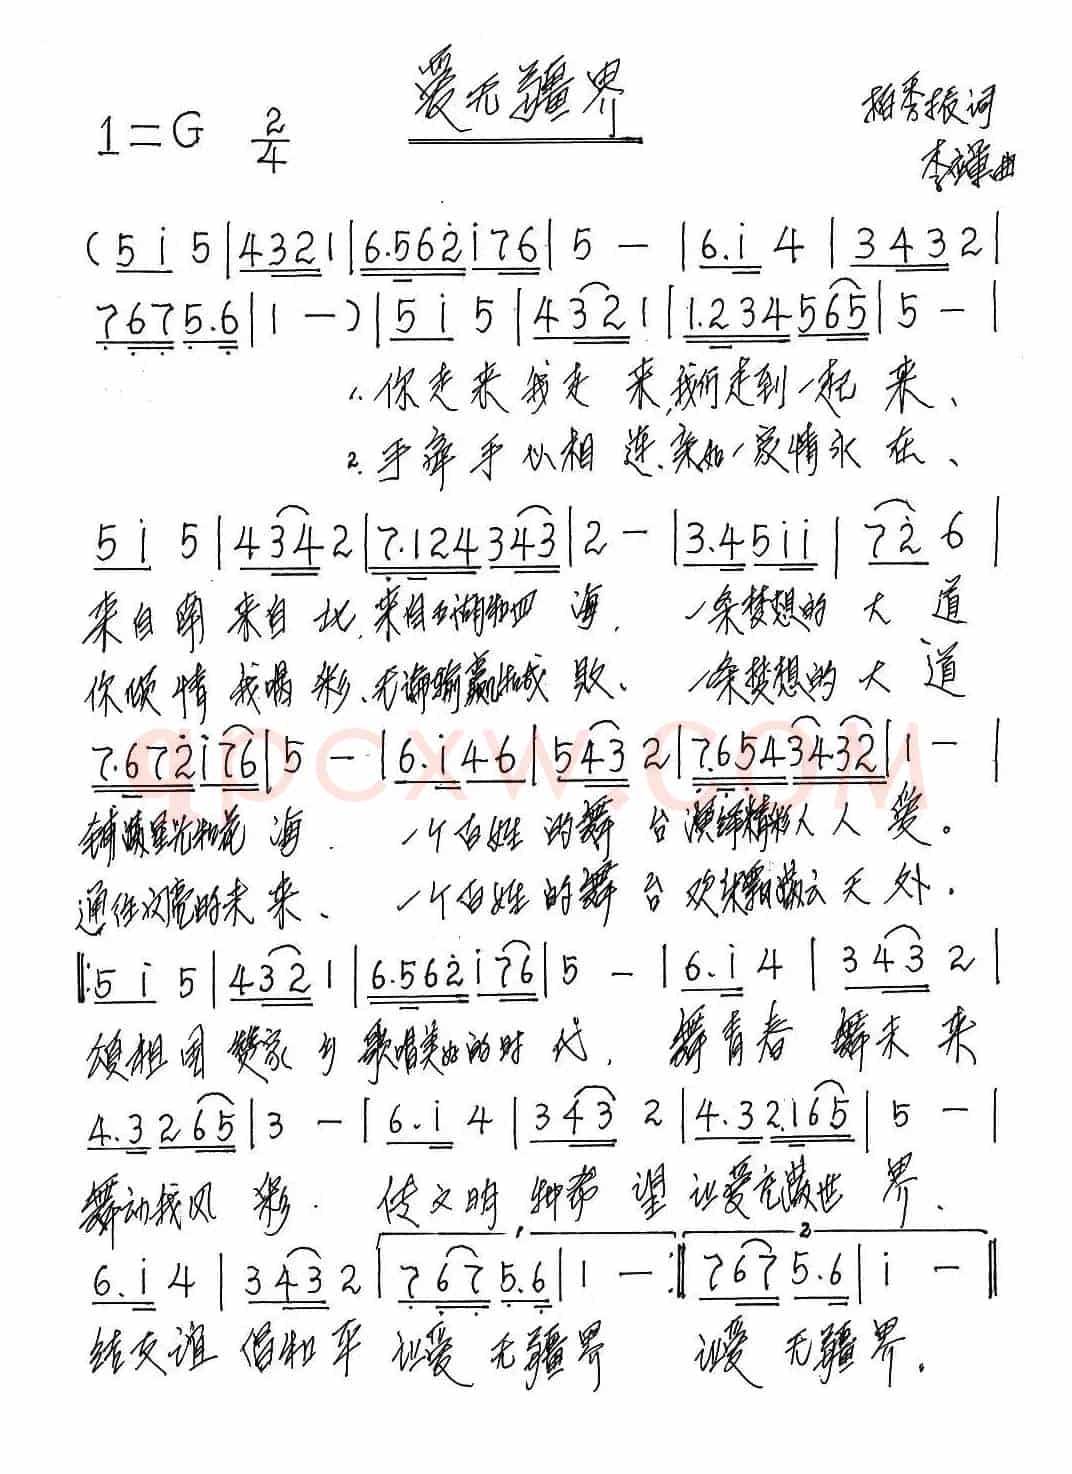 爱无疆界
1=G 2/4
柏秀振词
李 曲
(5 i 5|4321|6.562i76|5 —|6.i 4|3432|
7675.6|1 —)|5 i 5|4321|1.234565|5 —|
1.你走来我走来,我们走到一起来、
2.手牵手心相连、亲如一家情永在、
5 i 5|4342|7.124343|2 —|3.45ii|72 6|
来自南来自北,来自五湖和四海,一条梦想的大道
你倾情我喝彩、无论输赢和成败、一条梦想的大道
7.672i76|5 —|6.i46|543 2|7.6543432|1 —|
铺满星光和花海.一个百姓的舞台演绎精彩人人爱。
通往漂亮的未来、一个百姓的舞台欢 云天外.
‖:5 i 5|4321|6.562i76|5 —|6.i 4|343 2|
颂祖国赞家乡歌唱美好的时代,舞青春舞未来
4.3265|3 —|6.i 4|343 2|4.32.165|5 —|
舞动我风彩.传文明种希望让爱充满世界、
1. 2
6.i 4|343 2|7675.6|1 —:‖7675.6|i —‖
结友谊倡和平让爱无疆界 让爱无疆界.
qpcxw.com